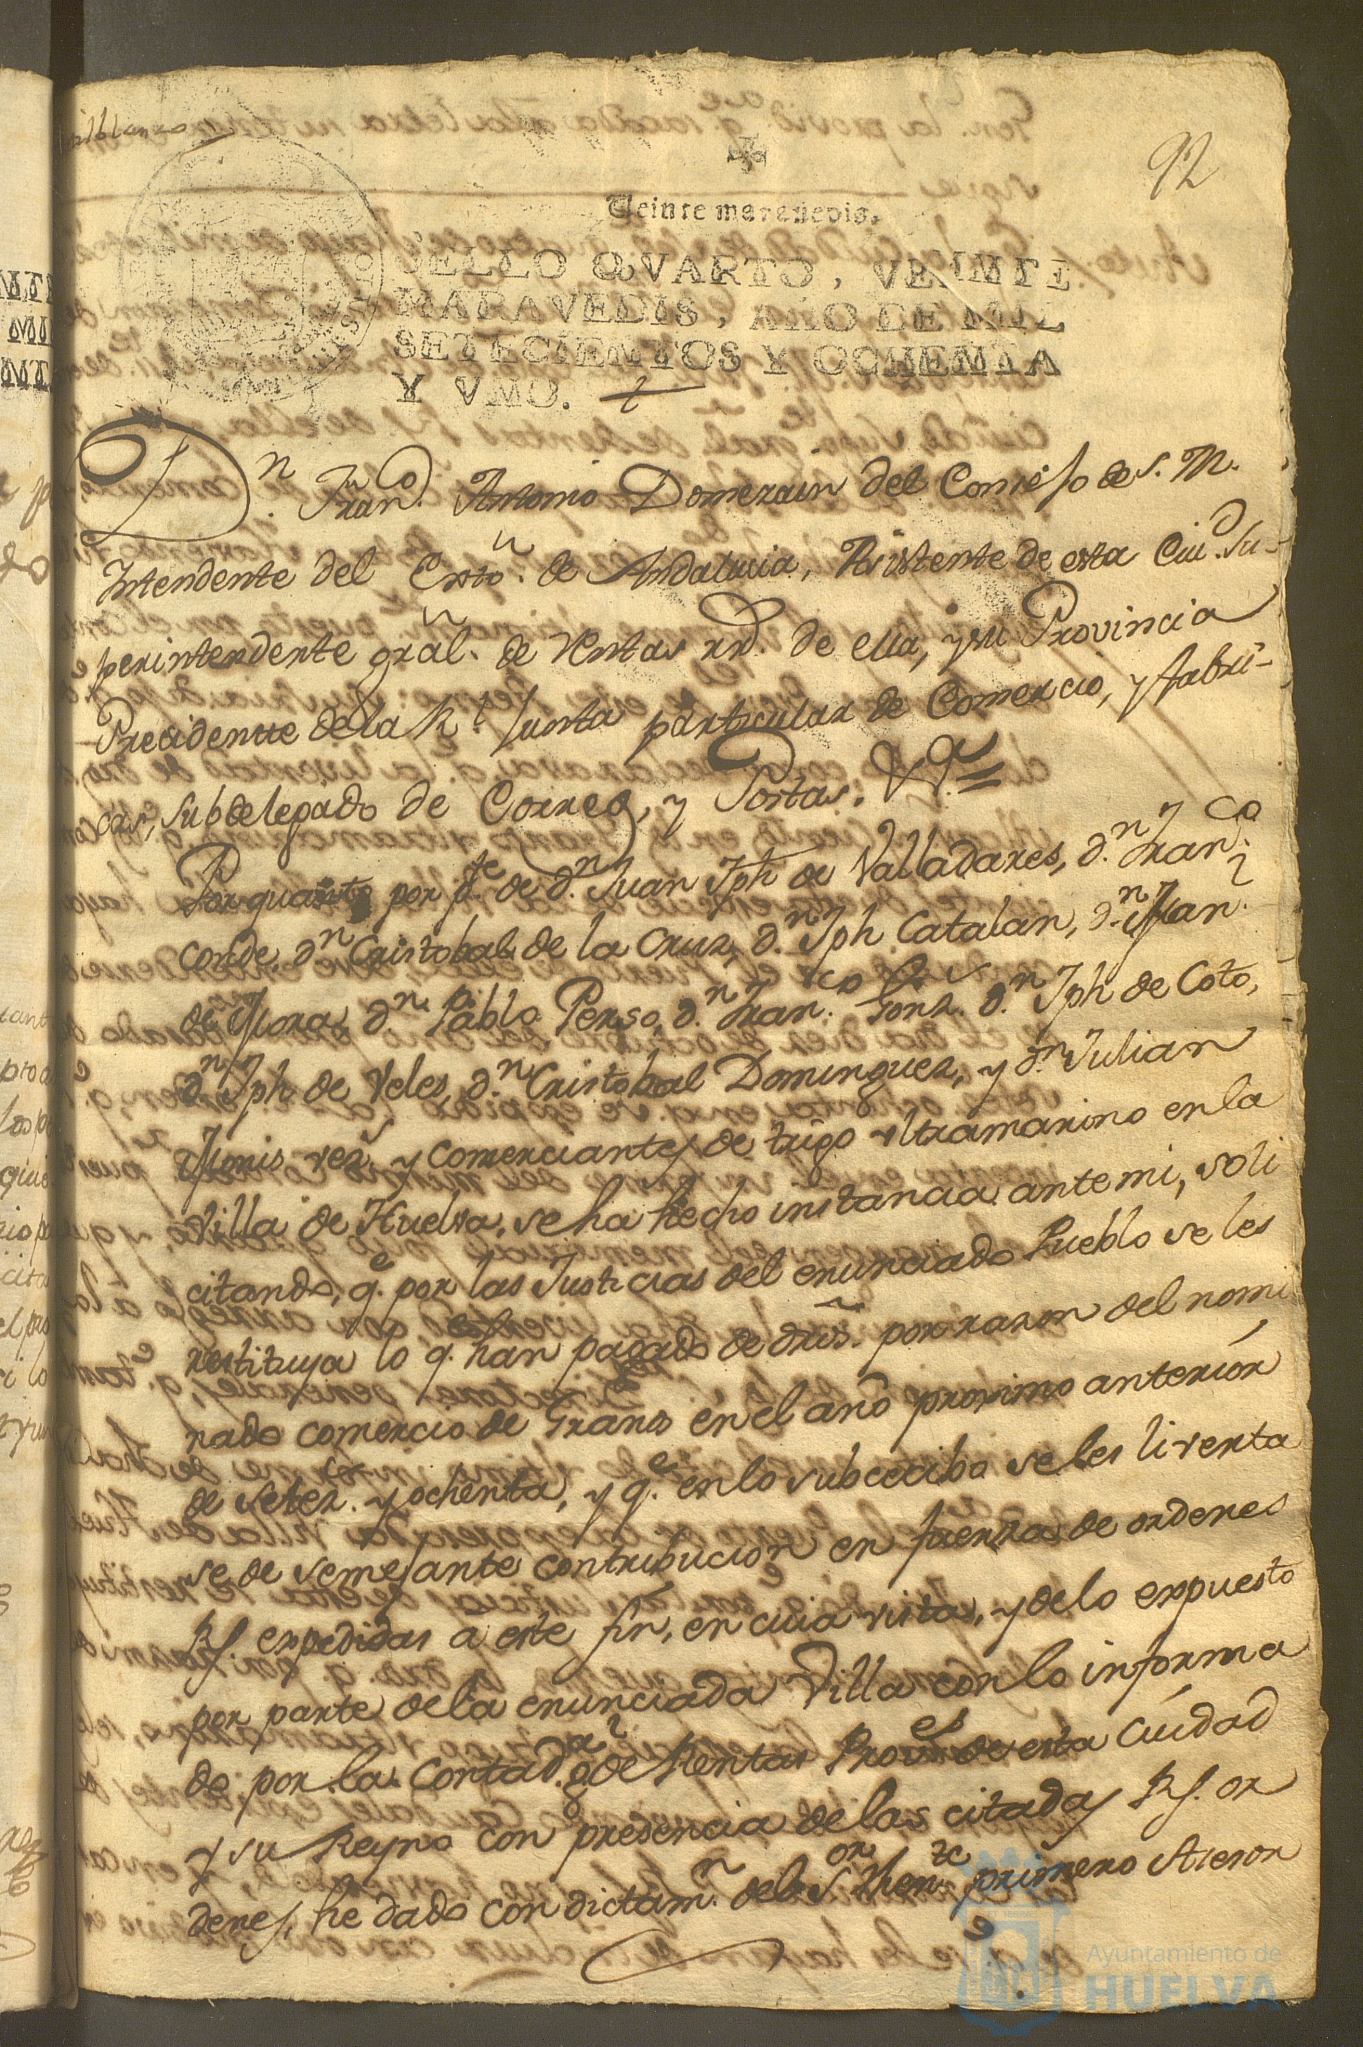 92
Veinte maravedis.
SELLO QVARTO, VEINTE
MARAVEDIS, AÑO DE MIL
SETECIENTOS Y OCHENTA
Y VNO.
Dn. Franco. Antonio Domezain del Consejo de S. M.
Intendente del Exto. de Andalucia, Asistente de esta Ciud. Su-
perintendente gral. de Rentas rrs. de ella, y su Provincia
Precidente de la Rl. Junta particular de Comercio, y fabri-
cas, Subdelegado de Correos, y Postas.
Por quanto por pte. de dn. Juan Jph de Valladares, dn. Franco.
Conde, dn. Cristobal de la Cruz, dn. Jph Catalan, dn. Manl.
de Mora, dn. Pablo Perso, dn. Franco. Gonz. dn. Jph de Coto,
dn. Jph de Veles, dn. Cristobal Dominguez, y dn. Julian
Monis vezs. y comerciantes de trigo ultramarino en la
Villa de Huelva, se ha hecho instancia ante mi, soli
citando, qe. por las Justicias del enunciado Pueblo se les
restituya lo q. han pagado de dros. por razon del nomi
nado comercio de Grano en el año proximo anterior
de setez. y ochenta, y qe. en lo subcecibo se les liverta
se de semejante contribucion en fuerza de ordenes
Rs. expedidas a este fin, en cuia vista, y de lo expuesto
por parte de la enunciada Villa con lo informa
do por la Contada. gl. de Rentas Proves. de esta Ciudad
y su Reyno con presencia de las citadas Rs. or
denes, he dado con dictamn. del Sor. Thente. primero Acesor
Ayuntamiento de
HUELVA